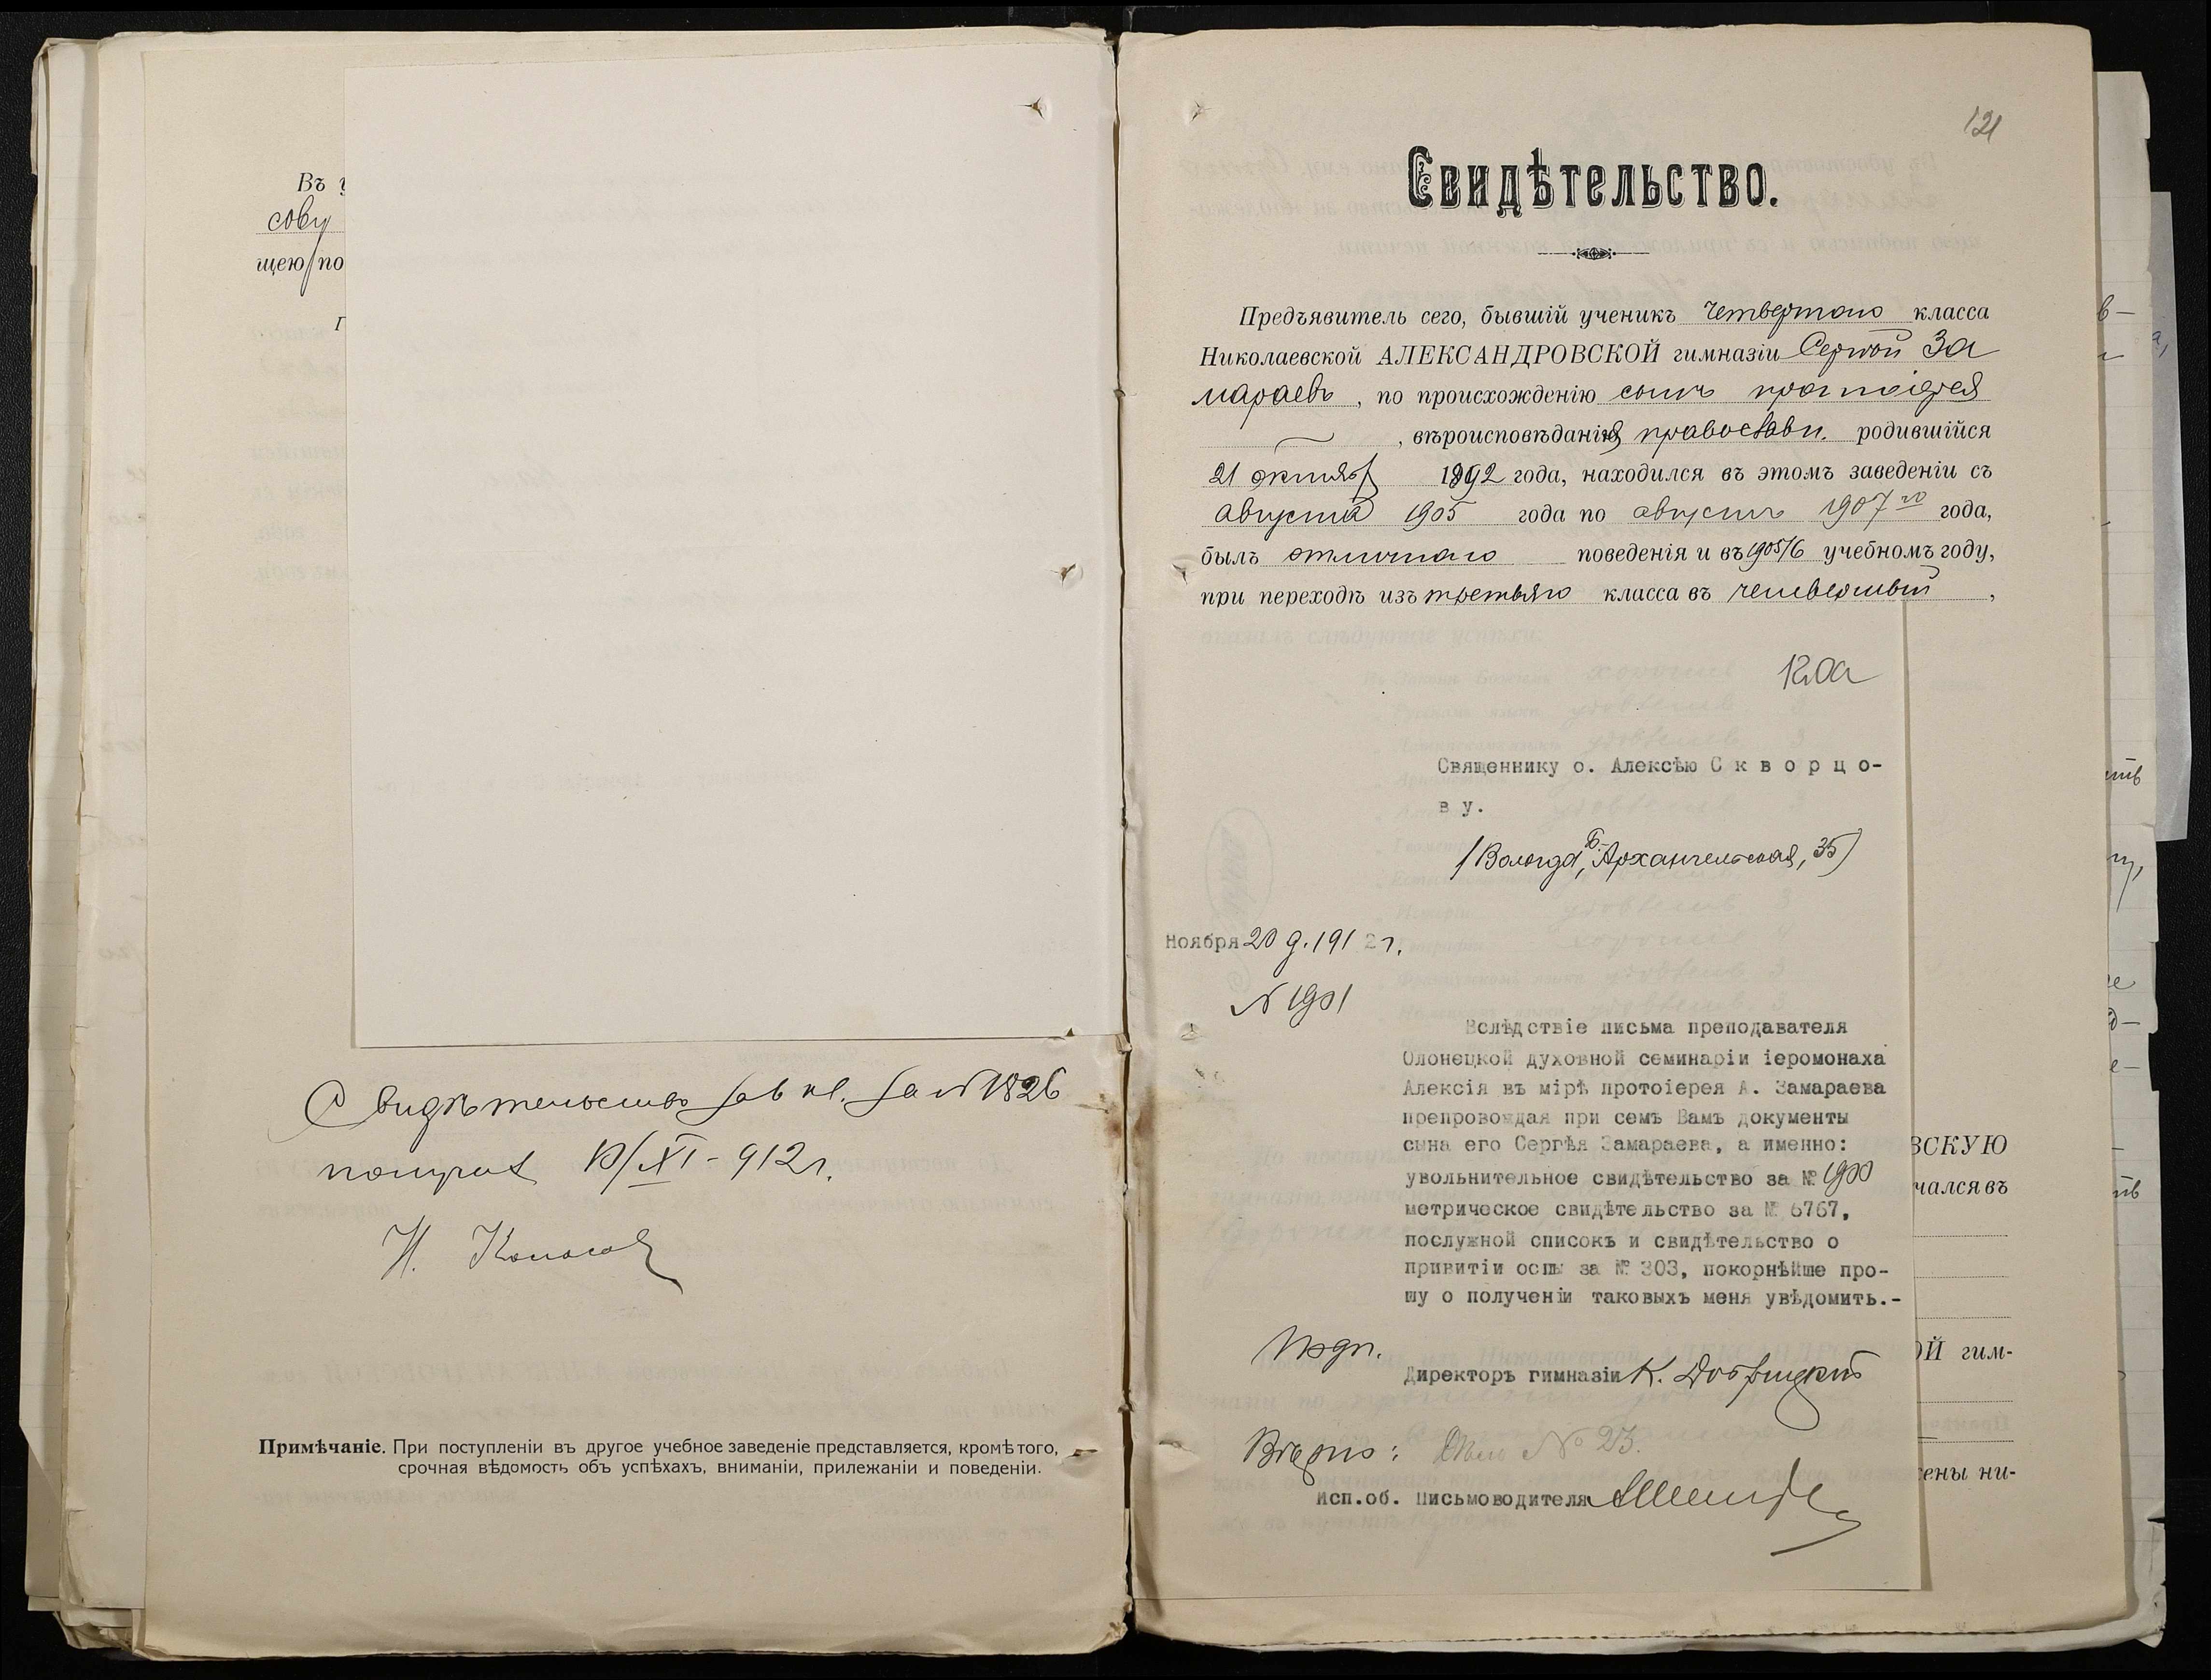 Въ у
сову
щею по
Г
Свидѣтельство за № 1826
получилъ 10/XI - 912 г.
Н. Колосов
Примѣчаніе. При поступленіи въ другое учебное заведеніе представляется, кромѣ того,
срочная вѣдомость объ успѣхахъ, вниманіи, прилежаніи и поведеніи.
121
Свидѣтельство.
Предъявитель сего, бывшій ученикъ Четвертаго класса
Николаевской АЛЕКСАНДРОВСКОЙ гимназіи Сергѣй За
мараевъ, по происхожденію сынъ протоіерея
, вѣроисповѣданія православн. родившійся
21 октября 1892 года, находился въ этомъ заведеніи съ
августа 1905 года по августъ 1907 го года,
былъ отличнаго поведенія и въ 1905/6 учебномъ году,
при переходѣ изъ третьяго класса въ четвертый,
120а
Священнику о. Алексѣю Скворцо-
ву.
(Вологда, Б. Архангельская, 35)
Ноября 20 д. 1912 г.
№ 1901
Вслѣдствіе письма преподавателя
Олонецкой духовной семинаріи іеромонаха
Алексія въ мірѣ протоіерея А. Замараева
препровождая при семъ Вамъ документы
сына его Сергѣя Замараева, а именно:
увольнительное свидѣтельство за № 1900
метрическое свидѣтельство за № 6767,
послужной списокъ и свидѣтельство о
привитіи оспы за № 303, покорнѣйше про-
шу о полученіи таковыхъ меня увѣдомить.-
Подп.
Директоръ гимназіи К. Добрицкій
Вѣрно: № 23.
Исп.об. Письмоводителя
ВСКУЮ
чался въ
ОЙ гим-
ены ни-